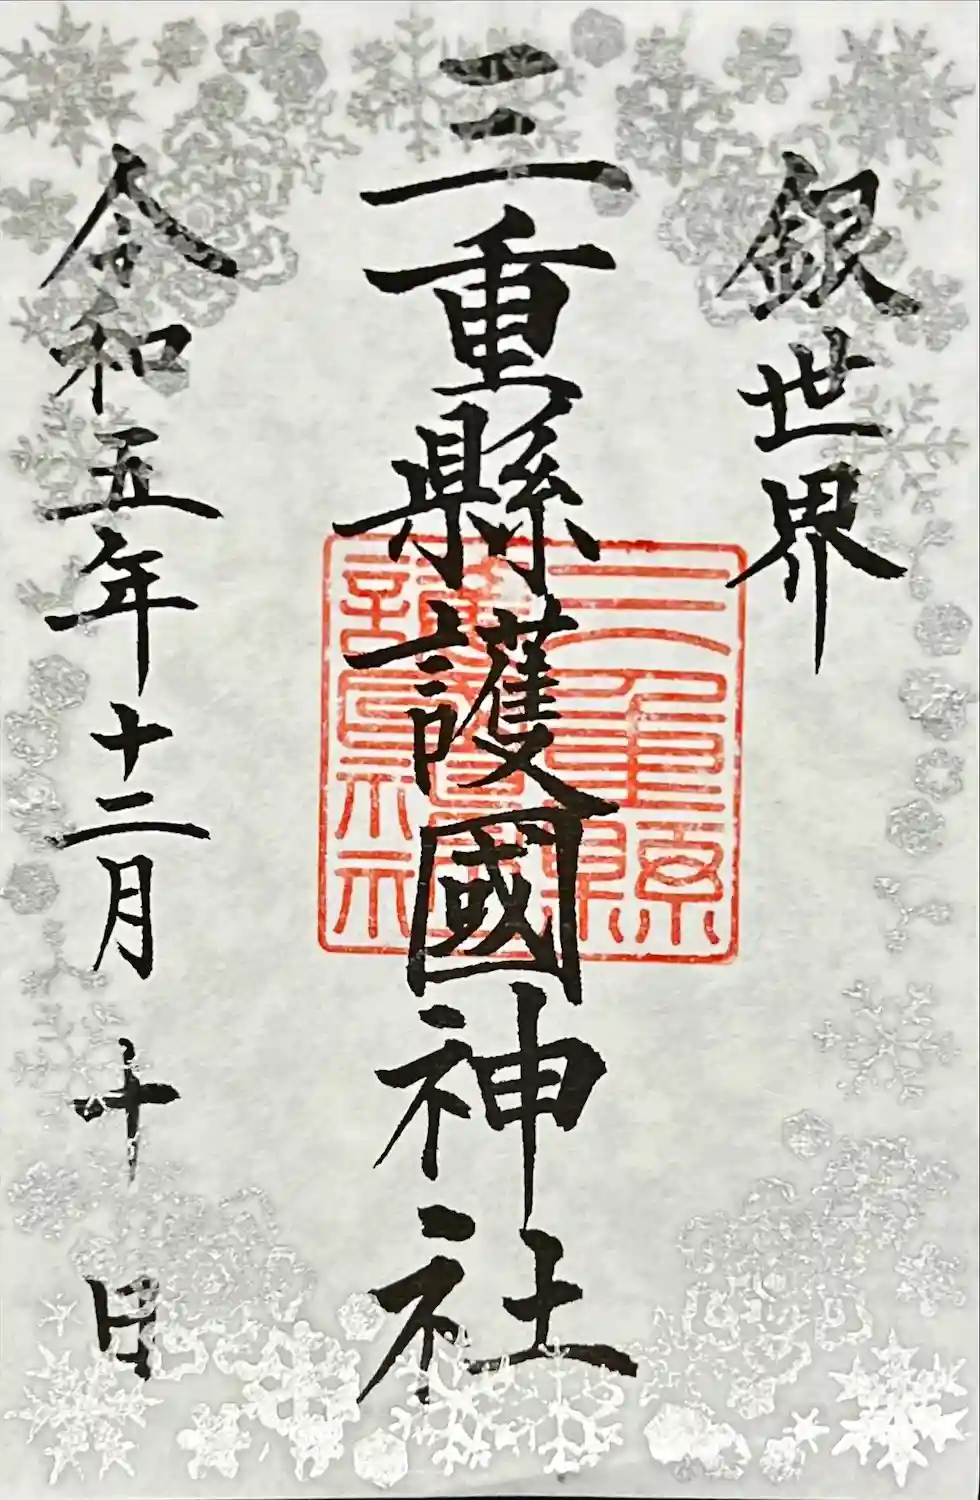 銀世界
三重縣護國神社
三重縣護國神社
令和五年十二月十日